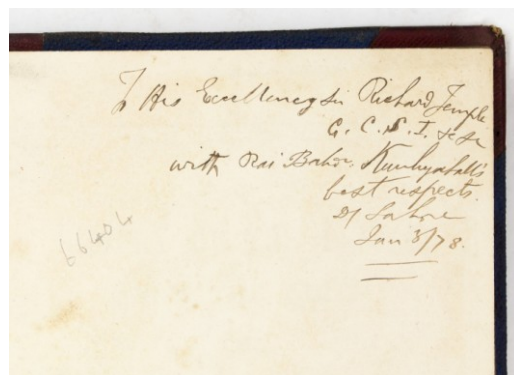 To His Excellency Sir Richard Temple
G. C. S. I. &c &c
with Rai Bahdr. Kunhya Lall's
best respects.
D/ Lahore
Jan 3/78.
66404